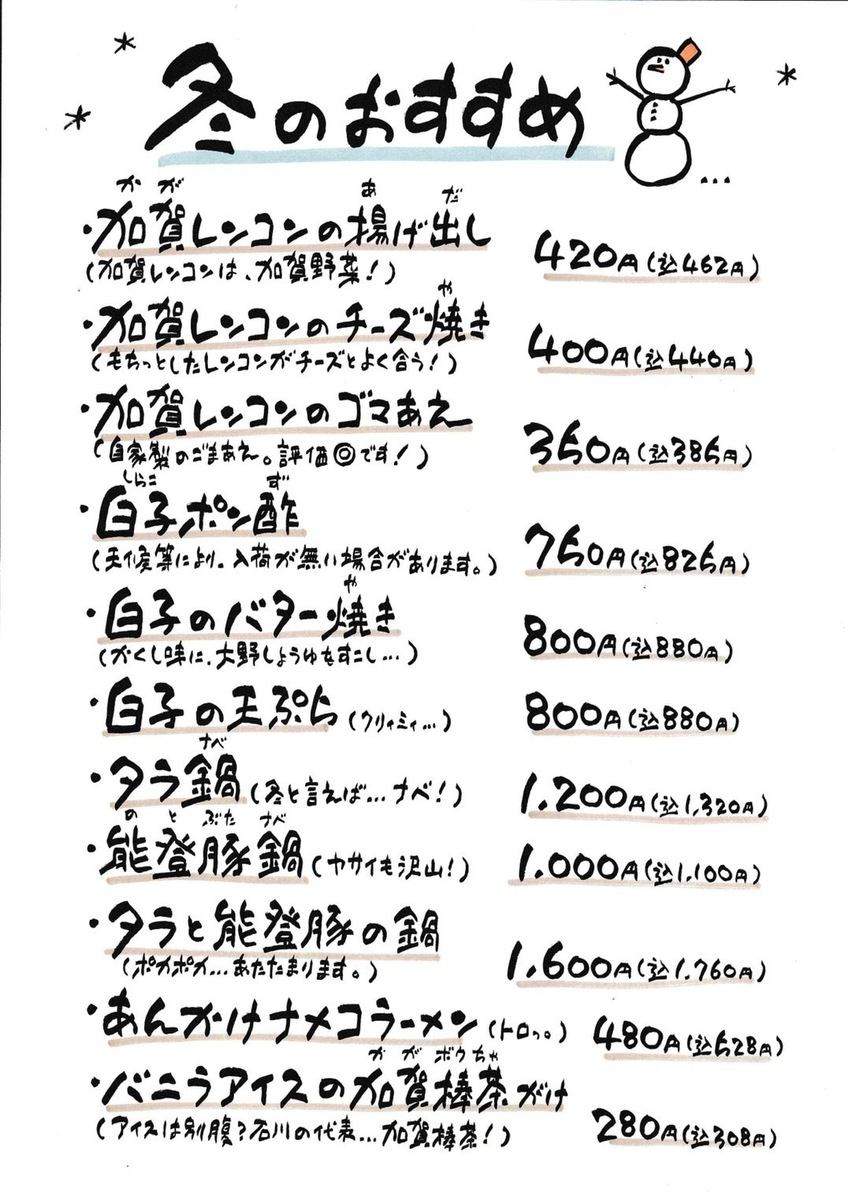 冬のおすすめ
かが あ だ
・加賀レンコンの揚げ出し 420円(込462円)
(加賀レンコンは、加賀野菜!)
や
・加賀レンコンのチーズ焼き 400円(込440円)
(もちっとしたレンコンがチーズとよく合う!)
・加賀レンコンのゴマあえ 350円(込385円)
(自家製のごまあえ。評価◎です!)
しらこ ず
・白子ポン酢 750円(込825円)
(天候等により、入荷が無い場合があります。)
や
・白子のバター焼き 800円(込880円)
(かくし味に、大野しょうゆをすこし…)
・白子の天ぷら(クリィミィ…) 800円(込880円)
ナベ
・タラ鍋(冬と言えば…ナベ!) 1,200円(込1,320円)
のと ぶた ナベ
・能登豚鍋(ヤサイも沢山!) 1,000円(込1,100円)
・タラと能登豚の鍋 1,600円(込1,760円)
(ポカポカ…あたたまります。)
・あんかけナメコラーメン(トロっ。) 480円(込528円)
かがボウちゃ
・バニラアイスの加賀棒茶がけ 280円(込308円)
(アイスは別腹?石川の代表…加賀棒茶!)